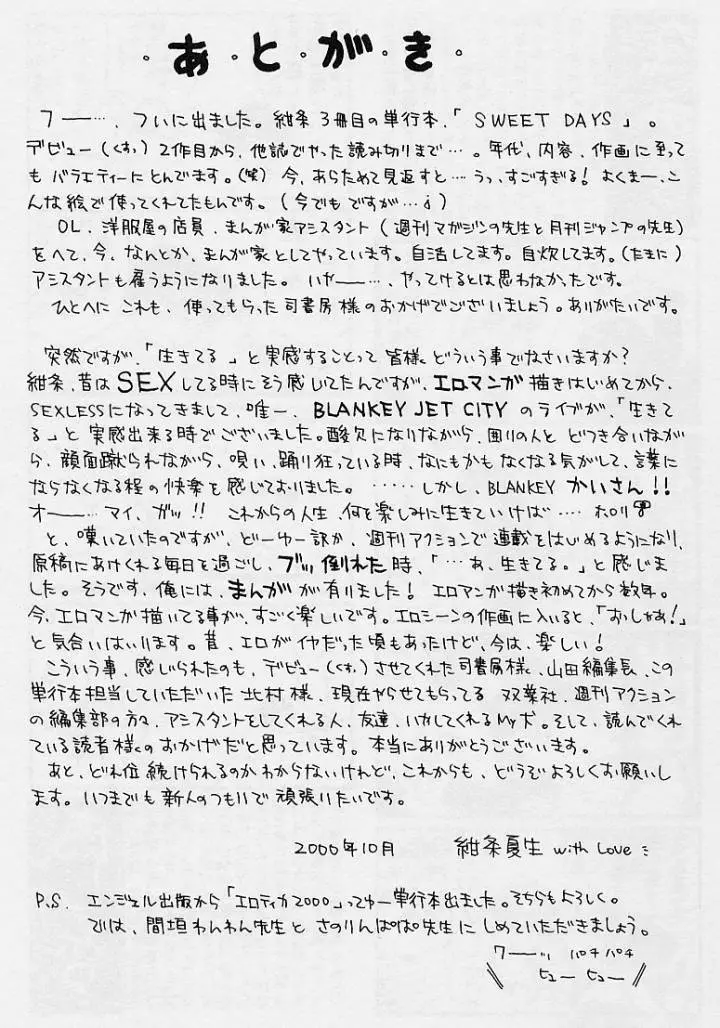 ・あ・と・が・き・
フー…、ついに出ました。紺条3冊目の単行本、「SWEET DAYS」。
デビュー(くすっ)2作目から、他誌でやった読み切りまで…。年代、内容、作画に至って
もバラエティーにとんでます。(笑)今、あらためて見返すと…うっ、すごすぎる!よくまー、こ
んな絵で使ってくれてたもんです。(今でもですが…)
OL、洋服屋の店員、まんが家アシスタント(週刊マガジンの先生と月刊ジャンプの先生)
をへて、今、なんとか、まんが家としてやっています。自活してます。自炊してます。(たまに)
アシスタントも雇うようになりました。いやー…、やってけるとは思わなかったです。
ひとへにこれも、使ってもらった司書房様のおかげでございましょう。ありがたいです。
突然ですが、「生きてる」と実感することって皆様、どういう事でなさいますか?
紺条、昔はSEXしてる時にそう感じてたんですが、エロマンガ描きはじめてから、
SEXLESSになってきまして、唯一、BLANKEY JET CITYのライブが、「生きて
る」と実感出来る時でございました。酸欠になりながら、囲りの人とどつき合いなが
ら、顔面蹴られながら、唄い、踊り狂っている時、なにもかもなくなる気がして、言葉に
ならなくなる程の快楽を感じておりました。……しかし、BLANKEYかいさん!!
オー…マイ、ガッ!!これからの人生、何を楽しみに生きていけば……ホロリ
と、嘆いていたのですが、どーゆー訳か、週刊アクションで連載をはじめるようになり、
原稿にあけくれる毎日を過ごし、ブッ倒れた時、「…あ、生きてる。」と感じま
した。そうです、俺には、まんがが有りました!エロマンガ描き初めてから数年。
今、エロマンが描いてる事が、すごく楽しいです。エロシーンの作画に入いると、「おっしゃあ!」
と気合いはいります。昔、エロがイヤだった頃もあったけど、今は、楽しい!
こういう事、感じられたのも、デビュー(くすっ)させてくれた司書房様、山田編集長、この
単行本担当していただいた北村様、現在やらせてもらってる双葉社、週刊アクション
の編集部の方々、アシスタントをしてくれる人、友達、いかしてくれるMy犬。そして、読んでくれ
ている読者様のおかげだと思っています。本当にありがとうございます。
あと、どれ位続けられるのかわからないけれど、これからも、どうぞよろしくお願いし
ます。いつまでも新人のつもりで頑張りたいです。
2000年10月 紺条夏生 with Love
P.S. エンジェル出版から「エロティカ2000」ってゆー単行本出ました。そちらもよろしく。
では、間垣わんわん先生とさのりんぱぱ先生にしめていただきましょう。
ワーッ パチパチ
ヒューヒュー